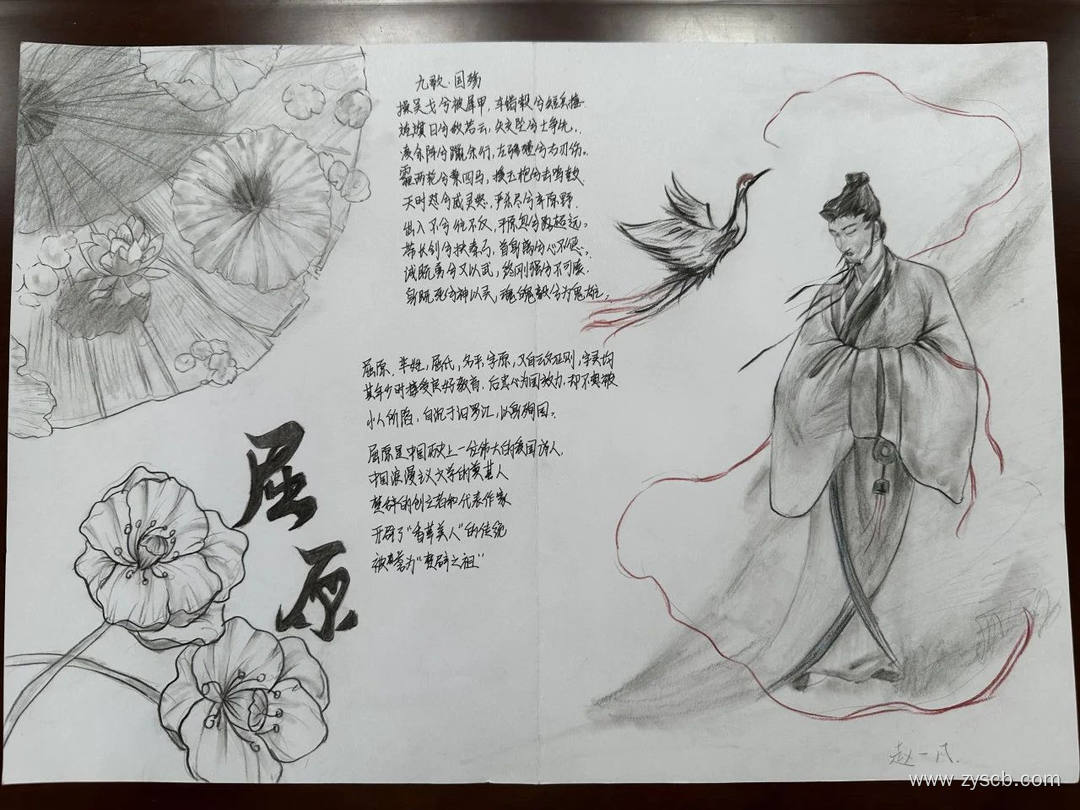 九歌·国殇
操吴戈兮被犀甲，车错毂兮短兵接
旌蔽日兮敌若云，矢交坠兮士争先，
凌余阵兮躐余行，左骖殪兮右刃伤。
霾两轮兮絷四马，援玉枹兮击鸣鼓
天时怼兮威灵怒，严杀尽兮弃原野.
出不入兮往不反，平原忽兮路超远。
带长剑兮挟秦弓，首身离兮心不惩。
诚既勇兮又以武，终刚强兮不可凌.
身既死兮神以灵，魂魄毅兮为鬼雄。
屈原、芈姓，屈氏，名平，字原，又自云名正则，字灵均
其年少时接受良好教育，后忠心为国效力，却不幸被
小人所陷，自沉于汨罗江，以身殉国。
屈原是中国历史上一位伟大的爱国诗人，
中国浪漫主义文学的奠基人
楚辞的创立者和代表作家
开辟了“香草美人”的传统
被誉为“楚辞之祖”
屈原
赵一凡.
www.zyscb.com